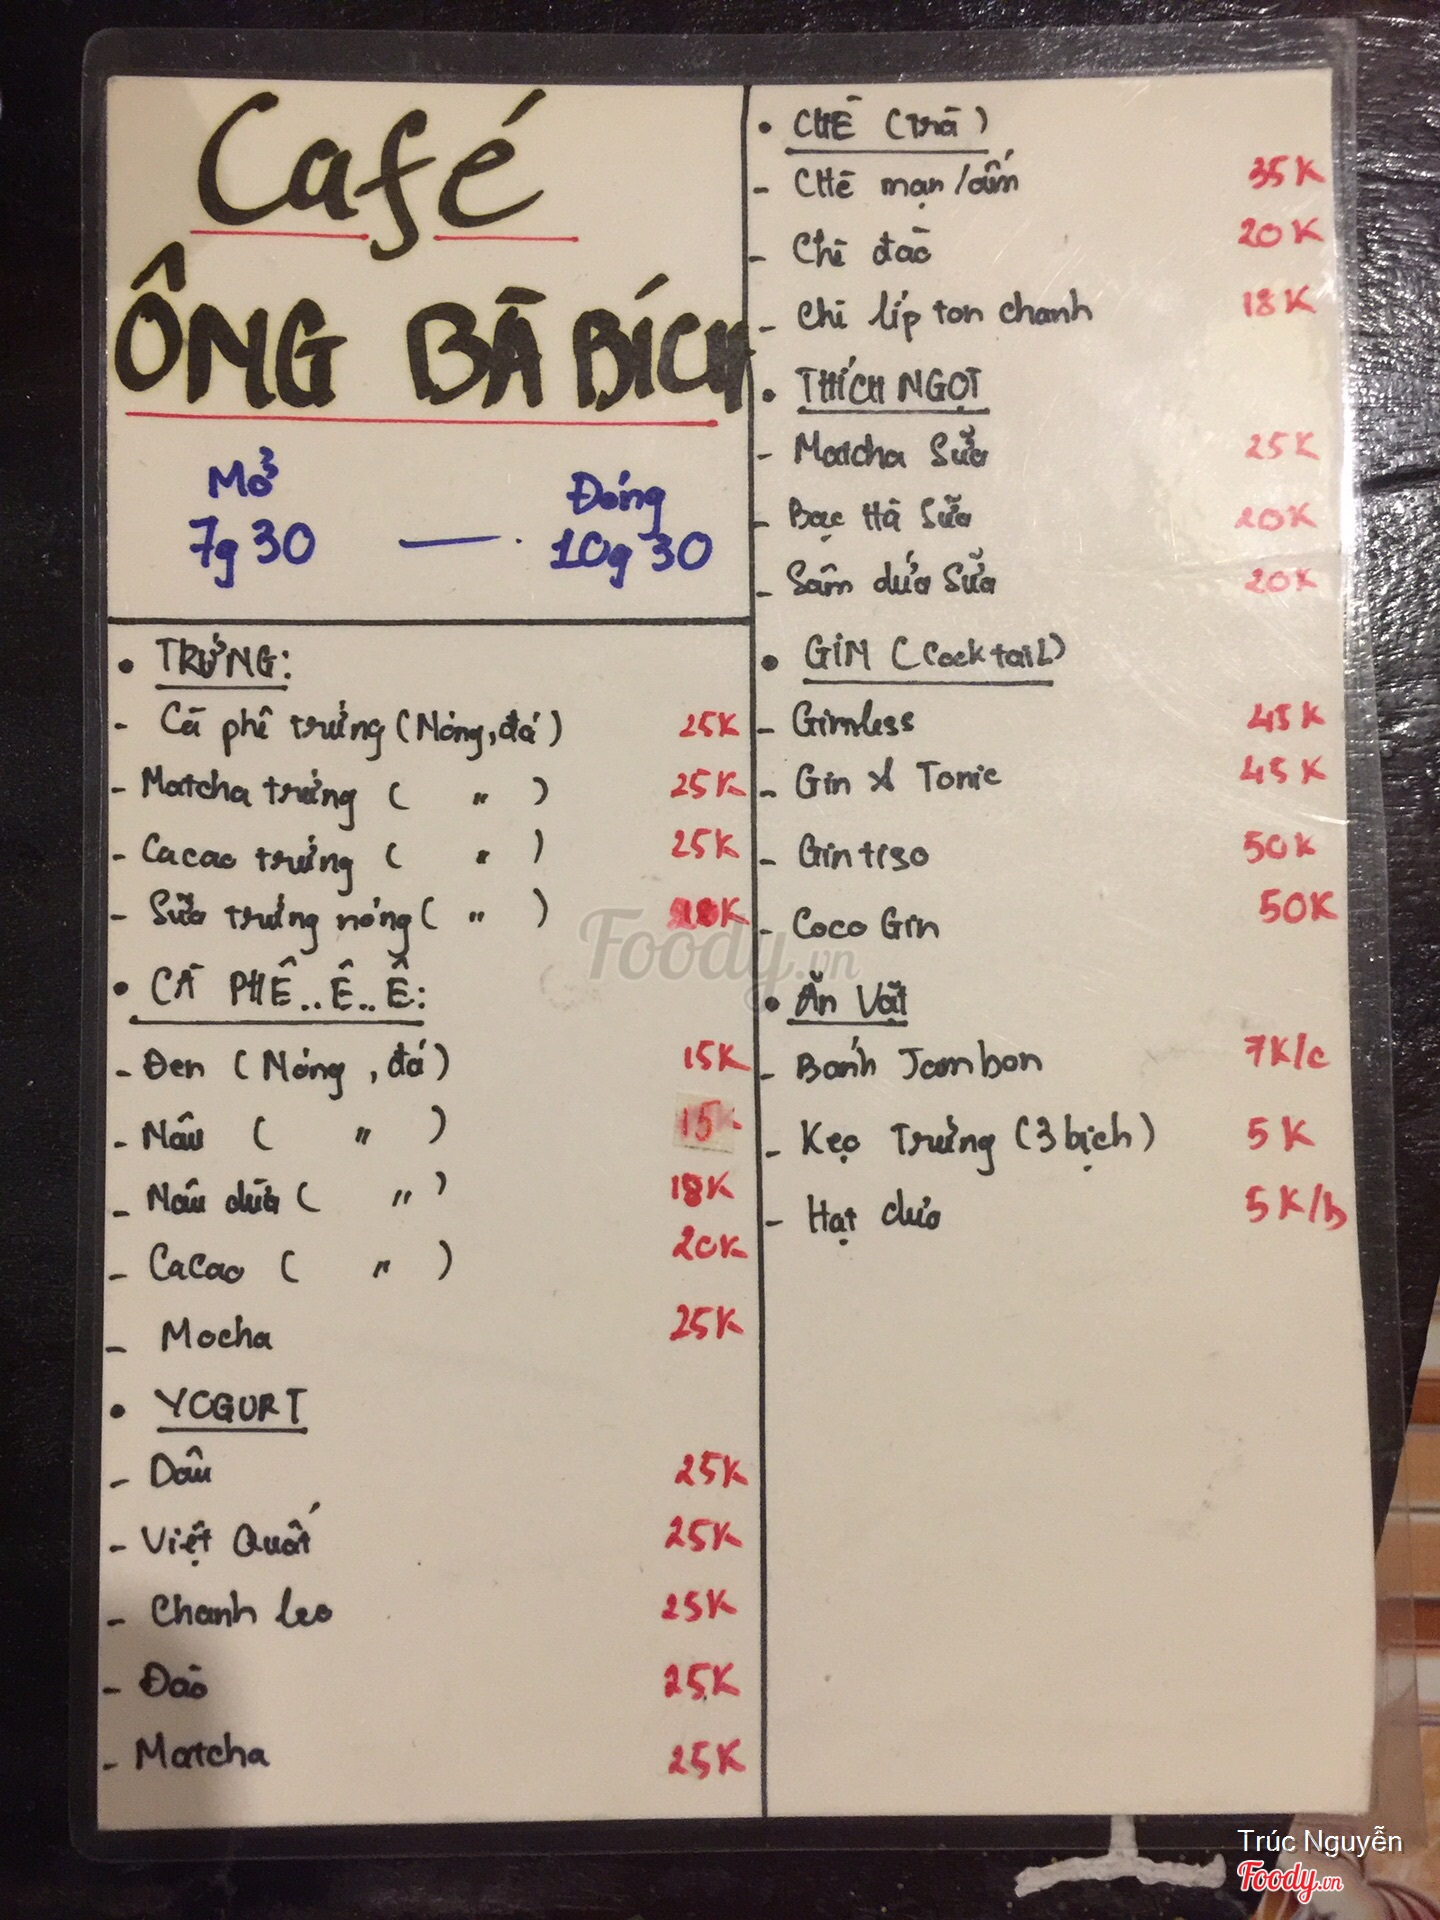 Café
ÔNG BÀ BÍCH
Mở Đóng
7g30 — 10g30
• TRỨNG:
- Cà phê trứng (Nóng, đá) 25K
- Matcha trứng ( " ) 25K
- Cacao trứng ( " ) 25K
- Sữa trứng nóng ( " )
• CÀ PHÊ..Ê..Ề:
- Đen (Nóng, đá) 15K
- Nâu ( " ) 15K
- Nâu dừa ( " ) 18K
- Cacao ( " ) 20K
- Mocha 25K
• YOGURT
- Dâu 25K
- Việt Quất 25K
- Chanh leo 25K
- Đào 25K
- Matcha 25K
• CHÈ (trà)
- CHÈ mạn /ấm 35K
- Chè đào 20K
- Chè líp ton chanh 18K
• THÍCH NGỌT
- Matcha Sữa 25K
- Bạc Hà Sữa 20K
- Sâm dứa Sữa 20K
• GIN (CocktaiL)
- Gimless 45K
- Gin & Tonic 45K
- Gintiso 50K
- Coco Gin 50K
• Ăn Vặt
- Bánh Jambon 7K/c
- Kẹo Trứng (3 bịch) 5K
- Hạt dưa 5K/b
Foody.vn
Trúc Nguyễn
Foody.vn